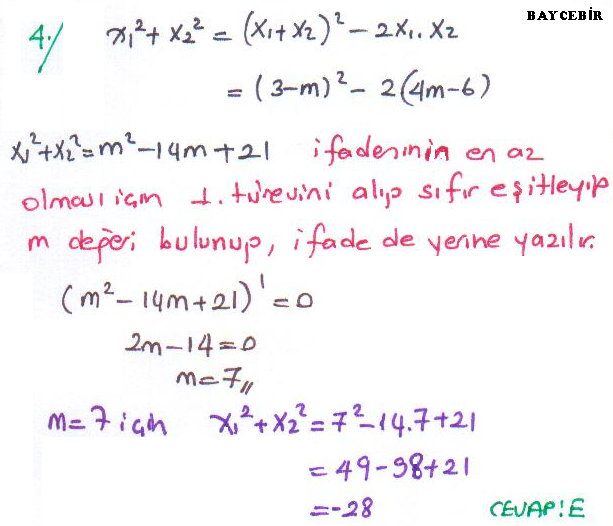 BAYCEBİR
4./ x₁² + x₂² = (x₁+x₂)² - 2x₁.x₂
= (3-m)² - 2(4m-6)
x₁²+x₂²=m²-14m+21 ifadesinin en az
olması için 1. türevini alıp sıfır eşitleyip
m değeri bulunup, ifade de yerine yazılır.
(m²-14m+21)' = 0
2m-14=0
m=7,,
m=7 için x₁²+x₂²=7²-14.7+21
=49-98+21
=-28 CEVAP:E